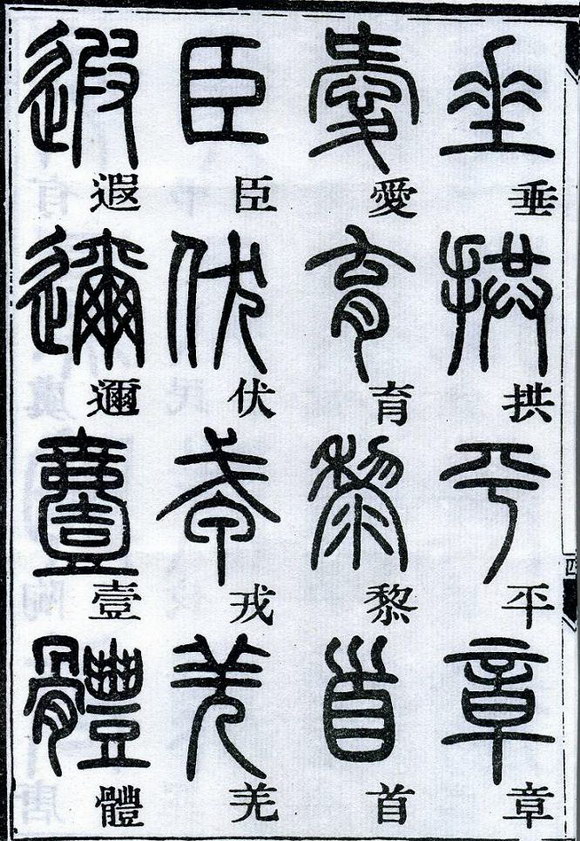 垂拱平章
垂拱平章
愛育黎首
愛育黎首
臣伏戎羌
臣伏戎羌
遐邇壹體
遐邇壹體